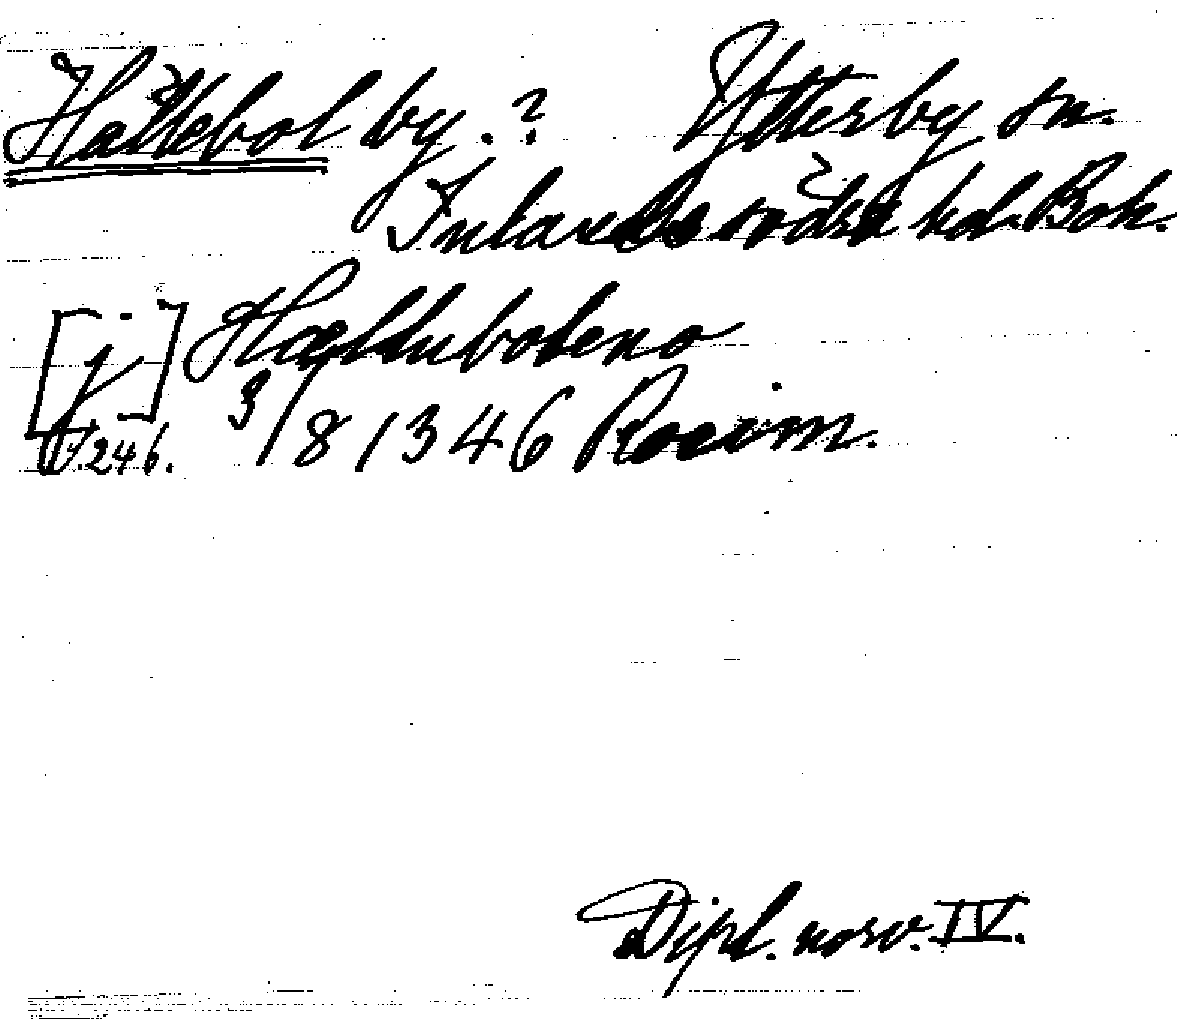 Håltebol by.? Ytterby sn.
Inlands södra hd. Boh.
[j] Hællduboleno
IV.246. 3/8 1346 Rocim.
Dipl. norv. IV.